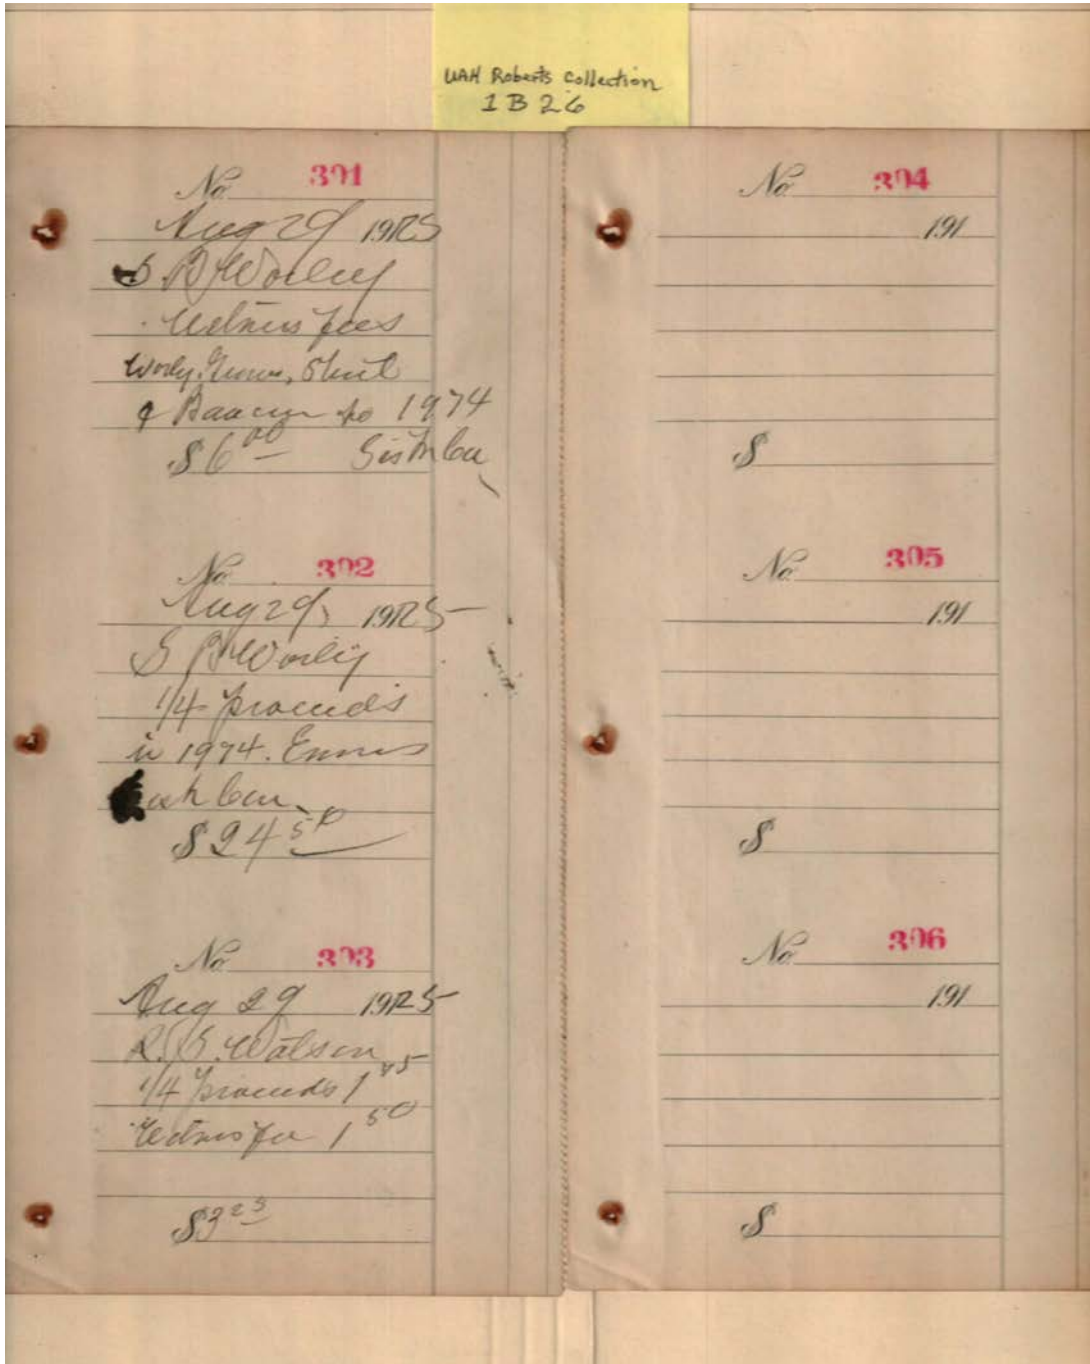 UAH Roberts Collection
1 B 26
No 301
Aug 29 1925
S. B. Worley
Witness fees
Worly
& to 1974
$6 00
No 302
Aug 29, 1925
S B Worley
1/4 proceeds
in 1974. Ennis
$24 50
No 303
Aug 29 1925
R. S. Watson
1/4 proceeds 1 75
Witness fee 1 50
$3 25
No 304
191
$
No 305
191
$
No 306
191
$